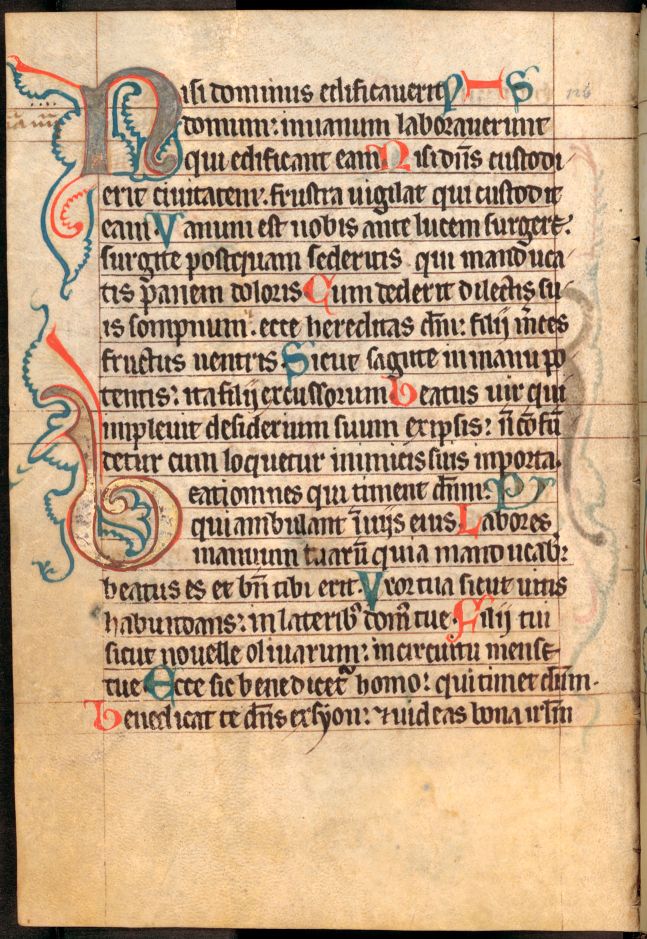 Nisi dominus edificauerit PS 126
domum: inuanum laborauerunt
qui edificant eam Nisi dn̄s custodi
erit ciuitatem. frustra uigilat qui custodit
eam. Vanum est uobis ante lucem surgere:
surgite postquam sederitis qui manduca
tis panem doloris Cum dederit dilectis su
is sompnum. ecce hereditas dn̄i: filij m̄ces
fructus uentris Sicut sagitte in manu po
tentis: ita filij excussorum beatus uir qui
impleuit desiderium suum ex ipsis: n̄ cōfū
detur cum loquetur inimicis suis in porta.
Beati omnes qui timent dn̄m: PS
qui ambulant ī uijs eius Labores
manuum tuarū quia manducab:
beatus es et bn̄ tibi erit. Vxor tua sicut uitis
habundans: in laterib9 dom9 tue. Filij tui
sicut nouelle oliuarum: in circuitu mense
tue Ecce sic benedicet᷑ homo: qui timet dn̄m.
benedicat te dn̄s ex syon: ⁊ uideas bona irl̄m